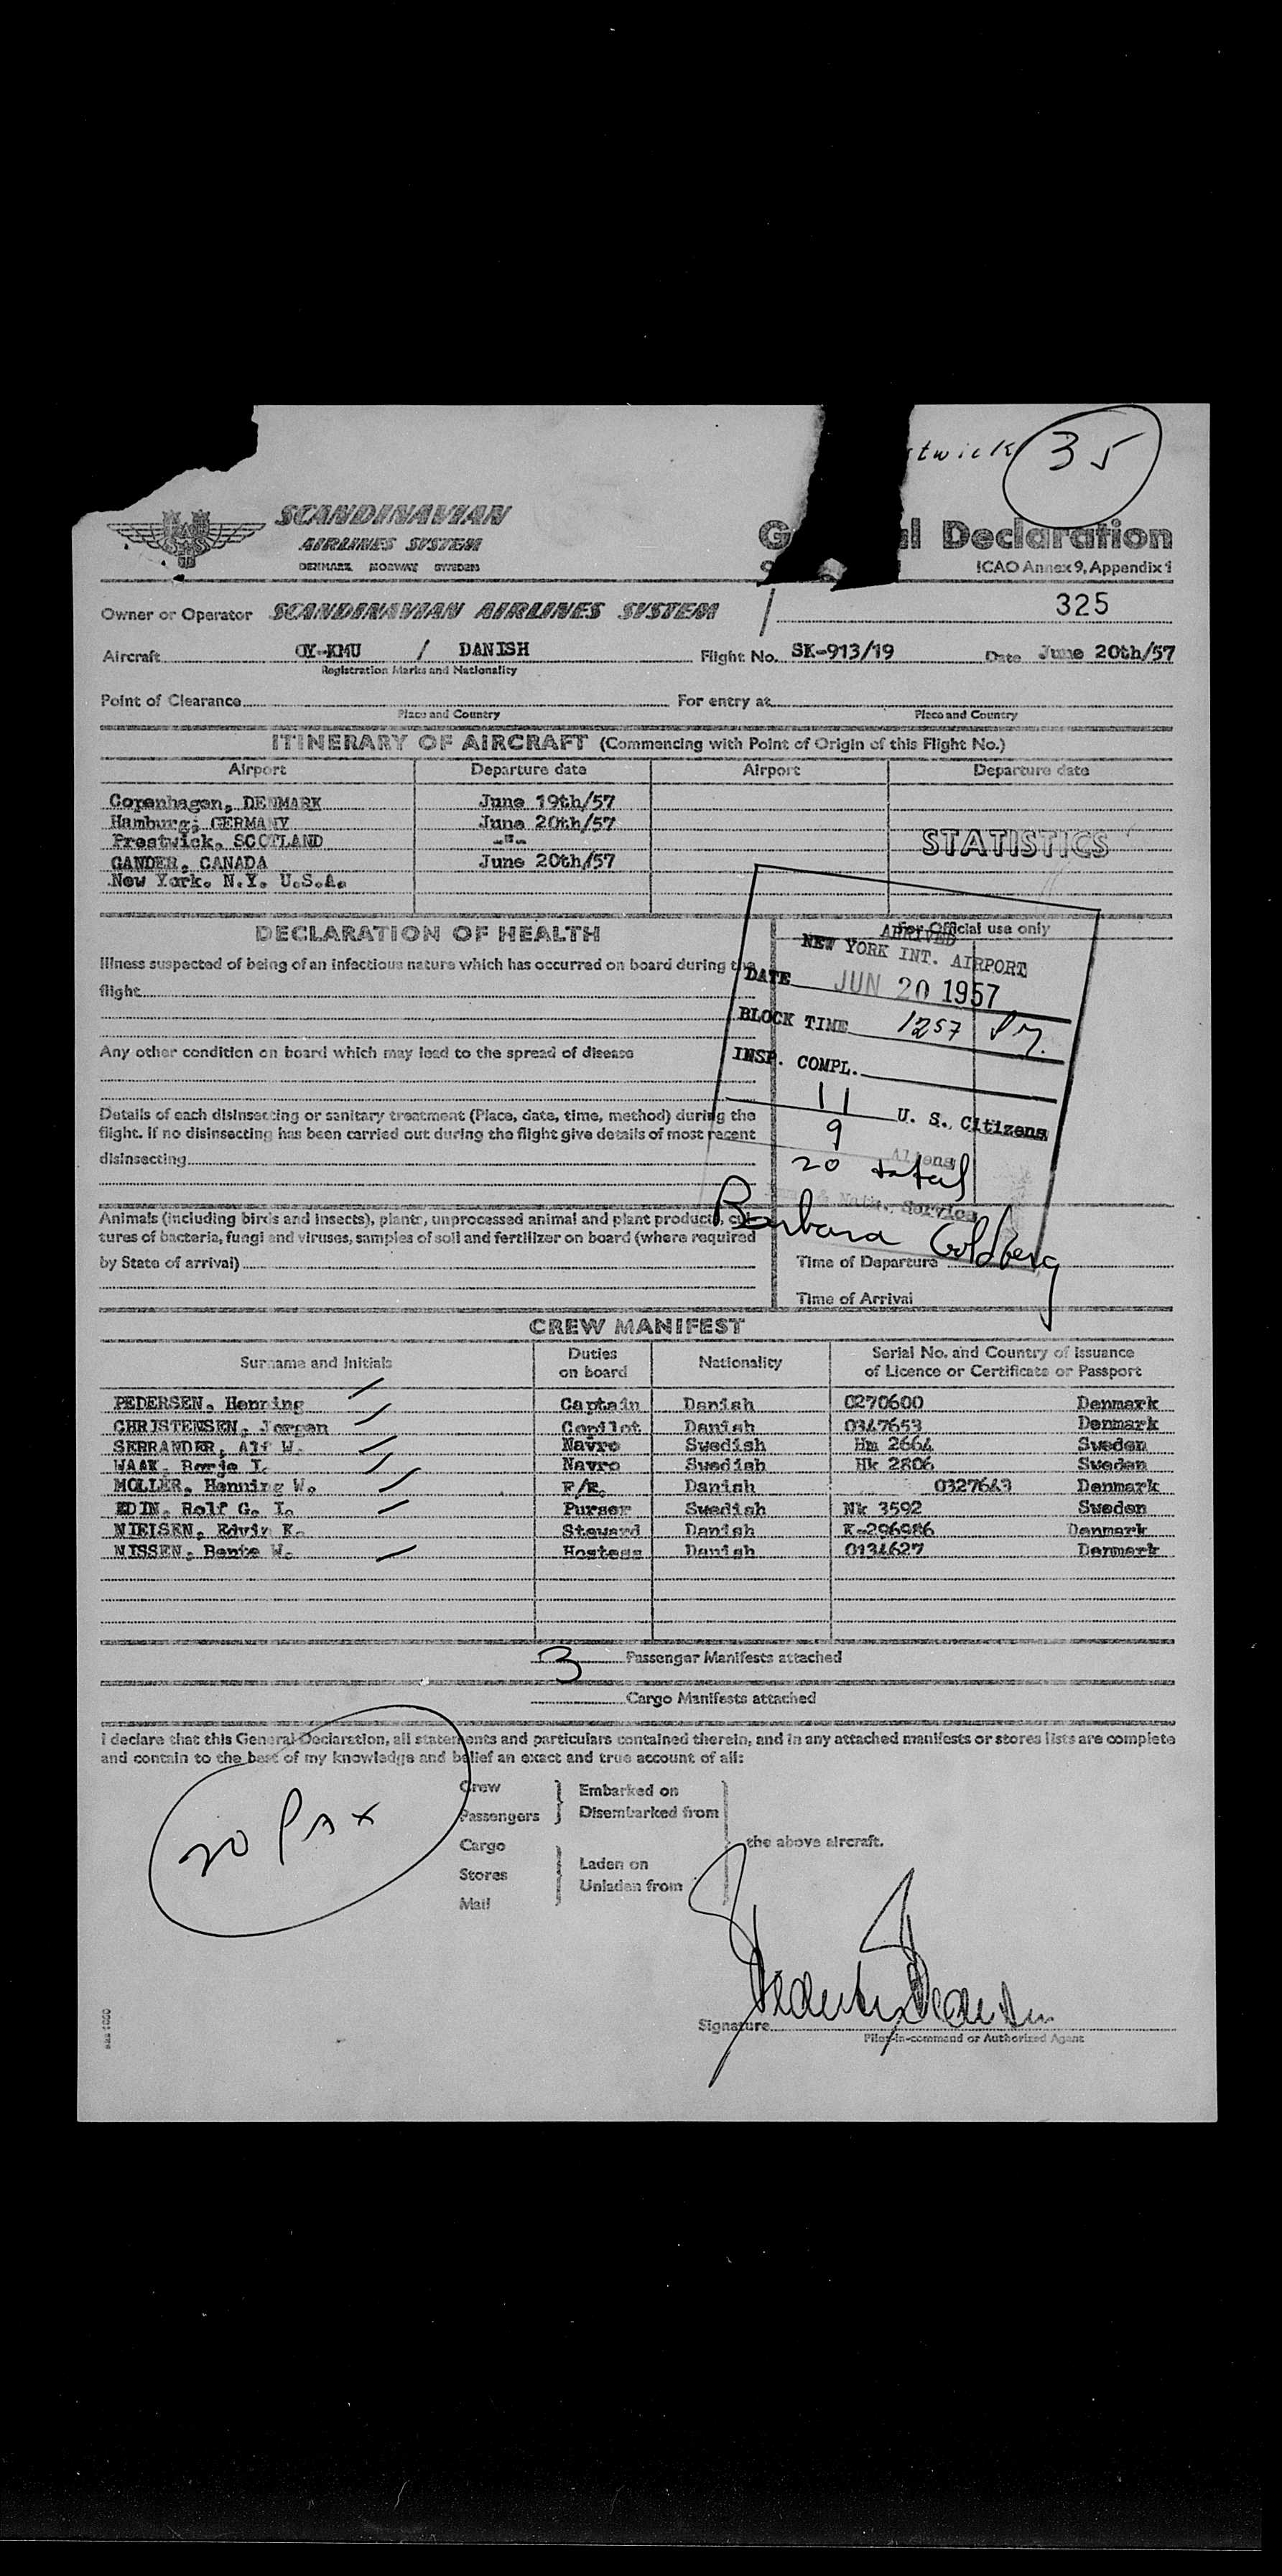 twick 35
SCANDINAVIAN
AIRLINES SYSTEM
DENMARK NORWAY SWEDEN
G l Declaration
ICAO Annex 9, Appendix 1
Owner or Operator SCANDINAVIAN AIRLINES SYSTEM / 325
Aircraft OY-KMU / DANISH Flight No. SK-913/19 Date June 20th/57
Registration Marks and Nationality
Point of Clearance For entry at
Place and Country Place and Country
ITINERARY OF AIRCRAFT (Commencing with Point of Origin of this Flight No.)
Airport Departure date Airport Departure date
Copenhagen, DENMARK June 19th/57
Hamburg; GERMANY June 20th/57
Prestwick, SCOTLAND -"-
STATISTICS
GANDER, CANADA June 20th/57
New York. N.Y. U.S.A.
DECLARATION OF HEALTH
For Official use only
Illness suspected of being of an infectious nature which has occurred on board during the
flight
Any other condition on board which may lead to the spread of disease
Details of each disinsecting or sanitary treatment (Place, date, time, method) during the
flight. If no disinsecting has been carried out during the flight give details of most recent
disinsecting
Animals (including birds and insects), plants, unprocessed animal and plant products, cul-
tures of bacteria, fungi and viruses, samples of soil and fertilizer on board (where required
by State of arrival)
ARRIVED
NEW YORK INT. AIRPORT
DATE JUN 20 1957
BLOCK TIME 1257 PM.
INSP. COMPL.
11 U. S. Citizens
9 Aliens
20 total
& Natz. Service
Barbara Goldberg
Time of Departure
Time of Arrival
CREW MANIFEST
Surname and Initials Duties on board Nationality Serial No. and Country of Issuance of Licence or Certificate or Passport
PEDERSEN, Henning Captain Danish 0270600 Denmark
CHRISTENSEN, Jorgen Copilot Danish 0347653 Denmark
SERRANDER, Alf W. Navro Swedish Hm 2664 Sweden
WAAK, Borje I. Navro Swedish Hk 2806 Sweden
MOLLER, Henning W. F/E. Danish 0327643 Denmark
EDIN, Rolf G. I. Purser Swedish Nk 3592 Sweden
NIELSEN, Edvin K. Steward Danish K-296986 Denmark
NISSEN, Bente W. Hostess Danish 0134627 Denmark
3 Passenger Manifests attached
Cargo Manifests attached
I declare that this General Declaration, all statements and particulars contained therein, and in any attached manifests or stores lists are complete
and contain to the best of my knowledge and belief an exact and true account of all:
Crew Embarked on
Passengers Disembarked from
the above aircraft.
Cargo
Stores Laden on
Unladen from
Mail
20 Pax
Signature
Pilot-in-command or Authorized Agent